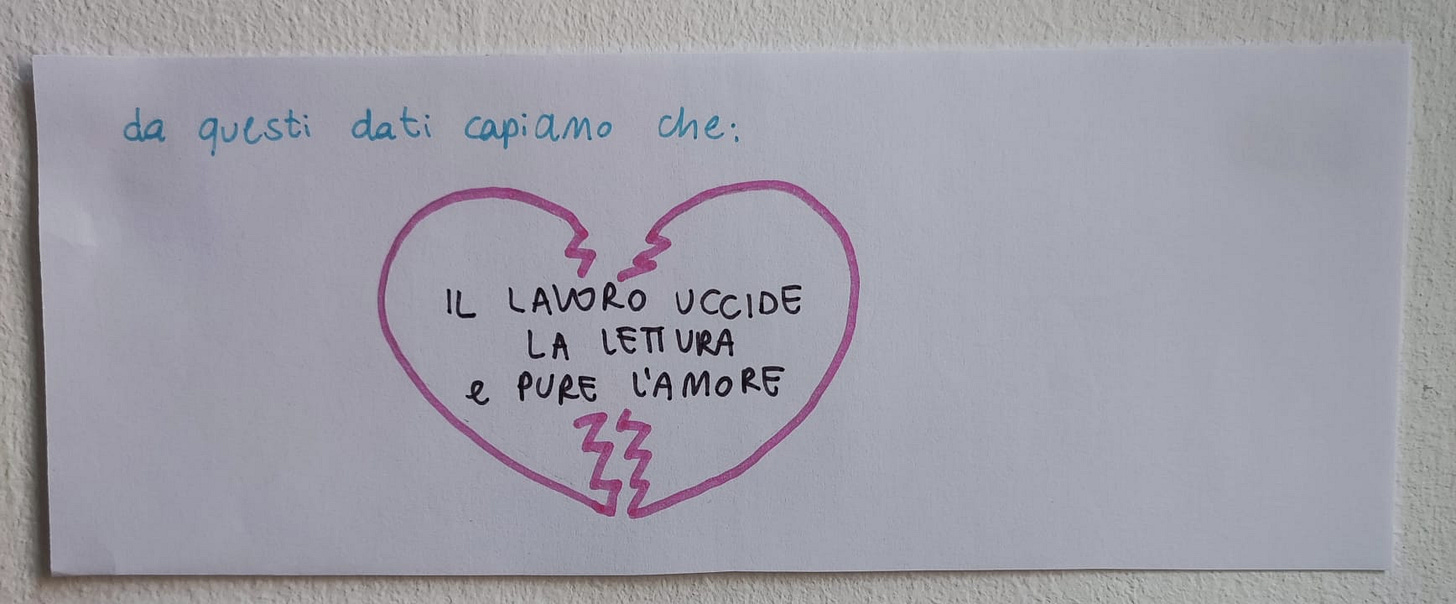 da questi dati capiamo che:
IL LAVORO UCCIDE
LA LETTURA
e PURE L'AMORE